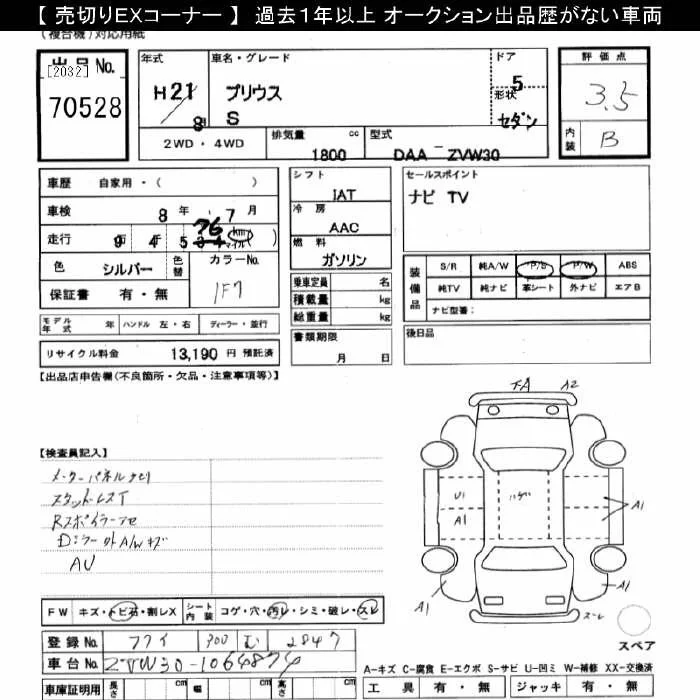 【 売切りEXコーナー 】 過去1年以上 オークション出品歴がない車両
(複合機)対応用紙
出品No.
[2032]
70528
年式 車名・グレード ドア
H21/8 プリウス S 5
形状 セダン
2WD・4WD 排気量 cc 型式
1800 DAA－ZVW30
評価点
3.5
内装 B
車歴 自家用・( )
車検 8年 7月
走行 9 4 5 34 76 km マイル
色 シルバー 色替 カラーNo.
1F7
保証書 有・無
モデル年式 年 ハンドル 左・右 ディーラー・並行
リサイクル料金 13,190 円 預託済
シフト
IAT
冷房
AAC
燃料
ガソリン
乗車定員 名
積載量 kg
総重量 kg
書類期限
月 日
セールスポイント
ナビ TV
装備品
S/R 純A/W P/S P/W ABS
純TV 純ナビ 革シート 外ナビ エアB
ナビ型番：
後日品
【出品店申告欄(不良箇所・欠品・注意事項等)】
【検査員記入】
メーターパネルケビリ
スタットレスT
Rスポイラーアセ
D:ラー外A/Wキズ
AU
A2
U1
A1
ハゲ
A1
A1
A1
スレ
スペア
FW キズ・トビ石・割レX シート内装 コゲ・穴・汚レ・シミ・破レ・スレ
登録No. 300 む 2847
車台No. ZVW30-1064874
車庫証明用 長さ cm 幅 cm 高さ cm
A-キズ C-腐食 E-エクボ S-サビ U-凹ミ W-補修 XX-交換済
工具 有・無 ジャッキ 有・無